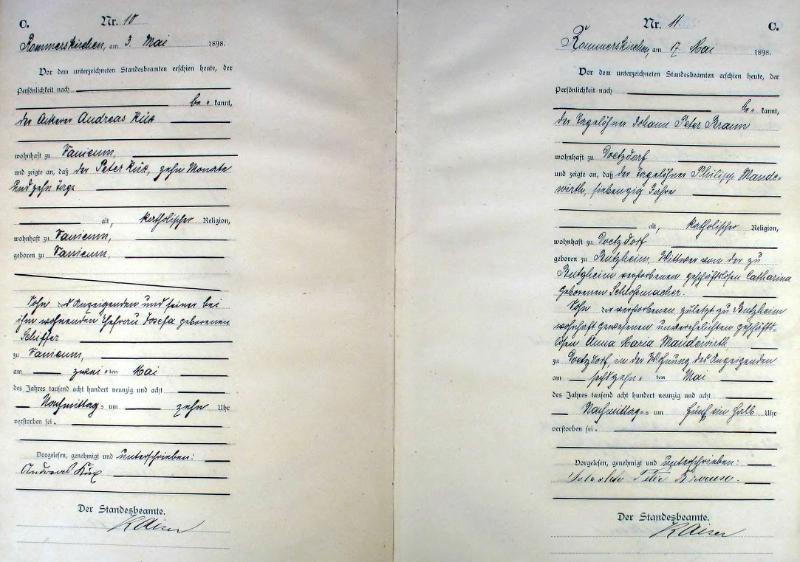 C. Nr. 10
Rommerskirchen, am 3. Mai 1898.
Vor dem unterzeichneten Standesbeamten erschien heute, der
Persönlichkeit nach
be = kannt,
der Ackerer Andreas Küx
wohnhaft zu Vanikum,
und zeigte an, daß der Peter Küx, zehn Monate
und zehn Tage
alt, katholischer Religion,
wohnhaft zu Vanikum,
geboren zu Vanikum,
Sohn des Anzeigenden und seiner bei
ihm wohnenden Ehefrau Josefa geborenen
Schiffer
zu Vanikum,
am zweiten Mai
des Jahres tausend acht hundert neunzig und acht
Nachmittags um zehn Uhr
verstorben sei.
Vorgelesen, genehmigt und unterschrieben:
Andreas Küx
Der Standesbeamte.
Kaiser
Nr. 11 C.
Rommerskirchen, am 17 Mai 1898.
Vor dem unterzeichneten Standesbeamten erschien heute, der
Persönlichkeit nach
be = kannt,
der Tagelöhner Johann Peter Braun
wohnhaft zu Doetzdorf
und zeigte an, daß der Tagelöhner Philipp Maude-
wirth, siebenzig Jahre
alt, katholischer Religion,
wohnhaft zu Doetzdorf
geboren zu Butzheim, Wittwer von der zu
Butzheim verstorbenen geschäftslosen Catharina
geborenen Schlossmacher.
Sohn der verstorbenen zuletzt zu Butzheim
wohnhaft gewesenen unverehelichten geschäfts-
losen Anna Maria Maudewirth
zu Doetzdorf in der Wohnung des Anzeigenden
am sechszehnten Mai
des Jahres tausend acht hundert neunzig und acht
Nachmittags um fünf ein halb Uhr
verstorben sei.
Vorgelesen, genehmigt und unterschrieben:
Peter
Der Standesbeamte.
Kaiser